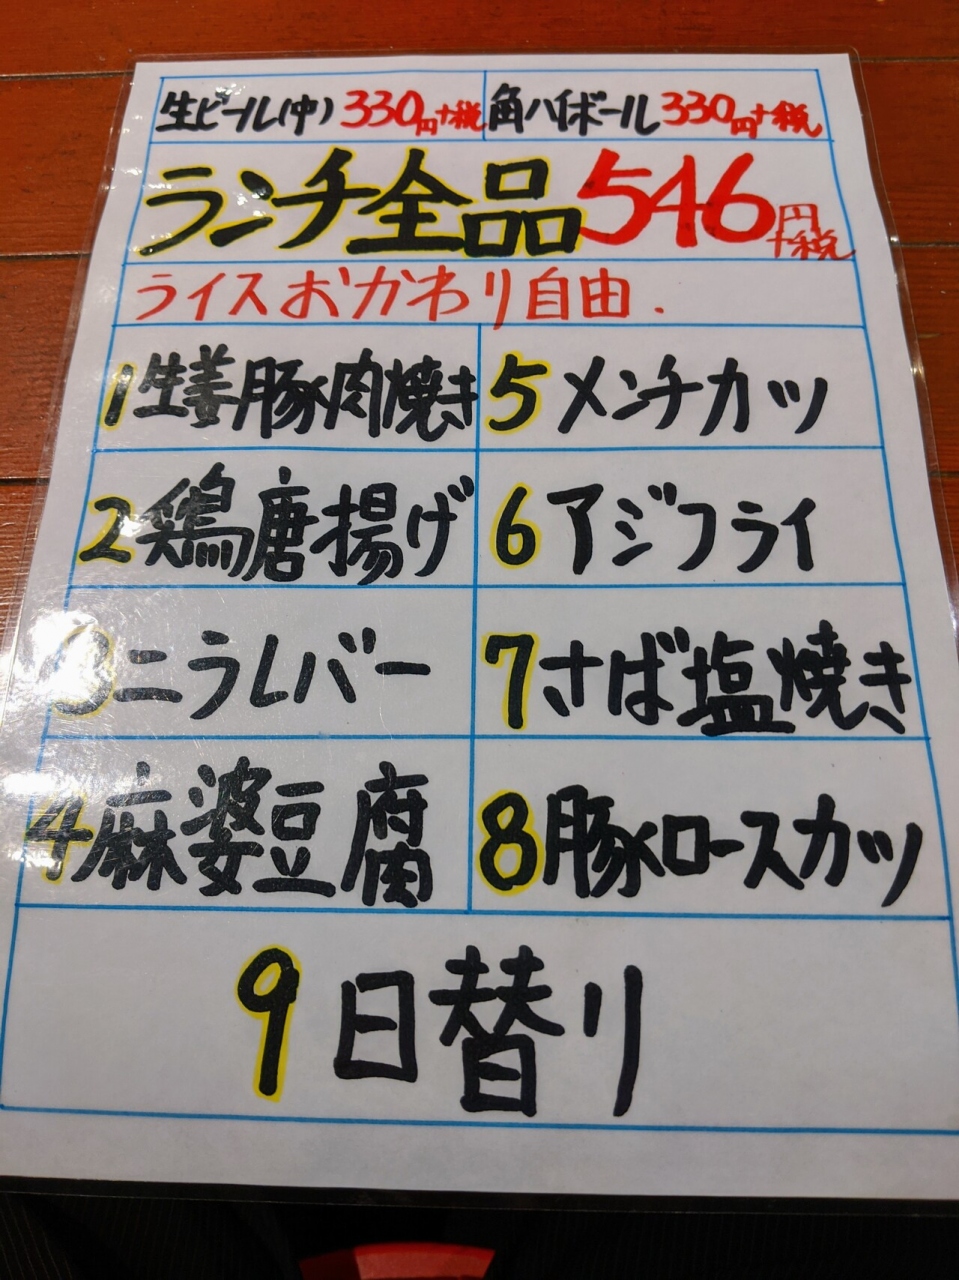 生ビール(中) 330円+税 角ハイボール 330円+税
ランチ全品546円+税
ライスおかわり自由.
1 生姜豚肉焼き
5 メンチカツ
2 鶏唐揚げ
6 アジフライ
3 ニラレバー
7 さば塩焼き
4 麻婆豆腐
8 豚ロースカツ
9 日替り